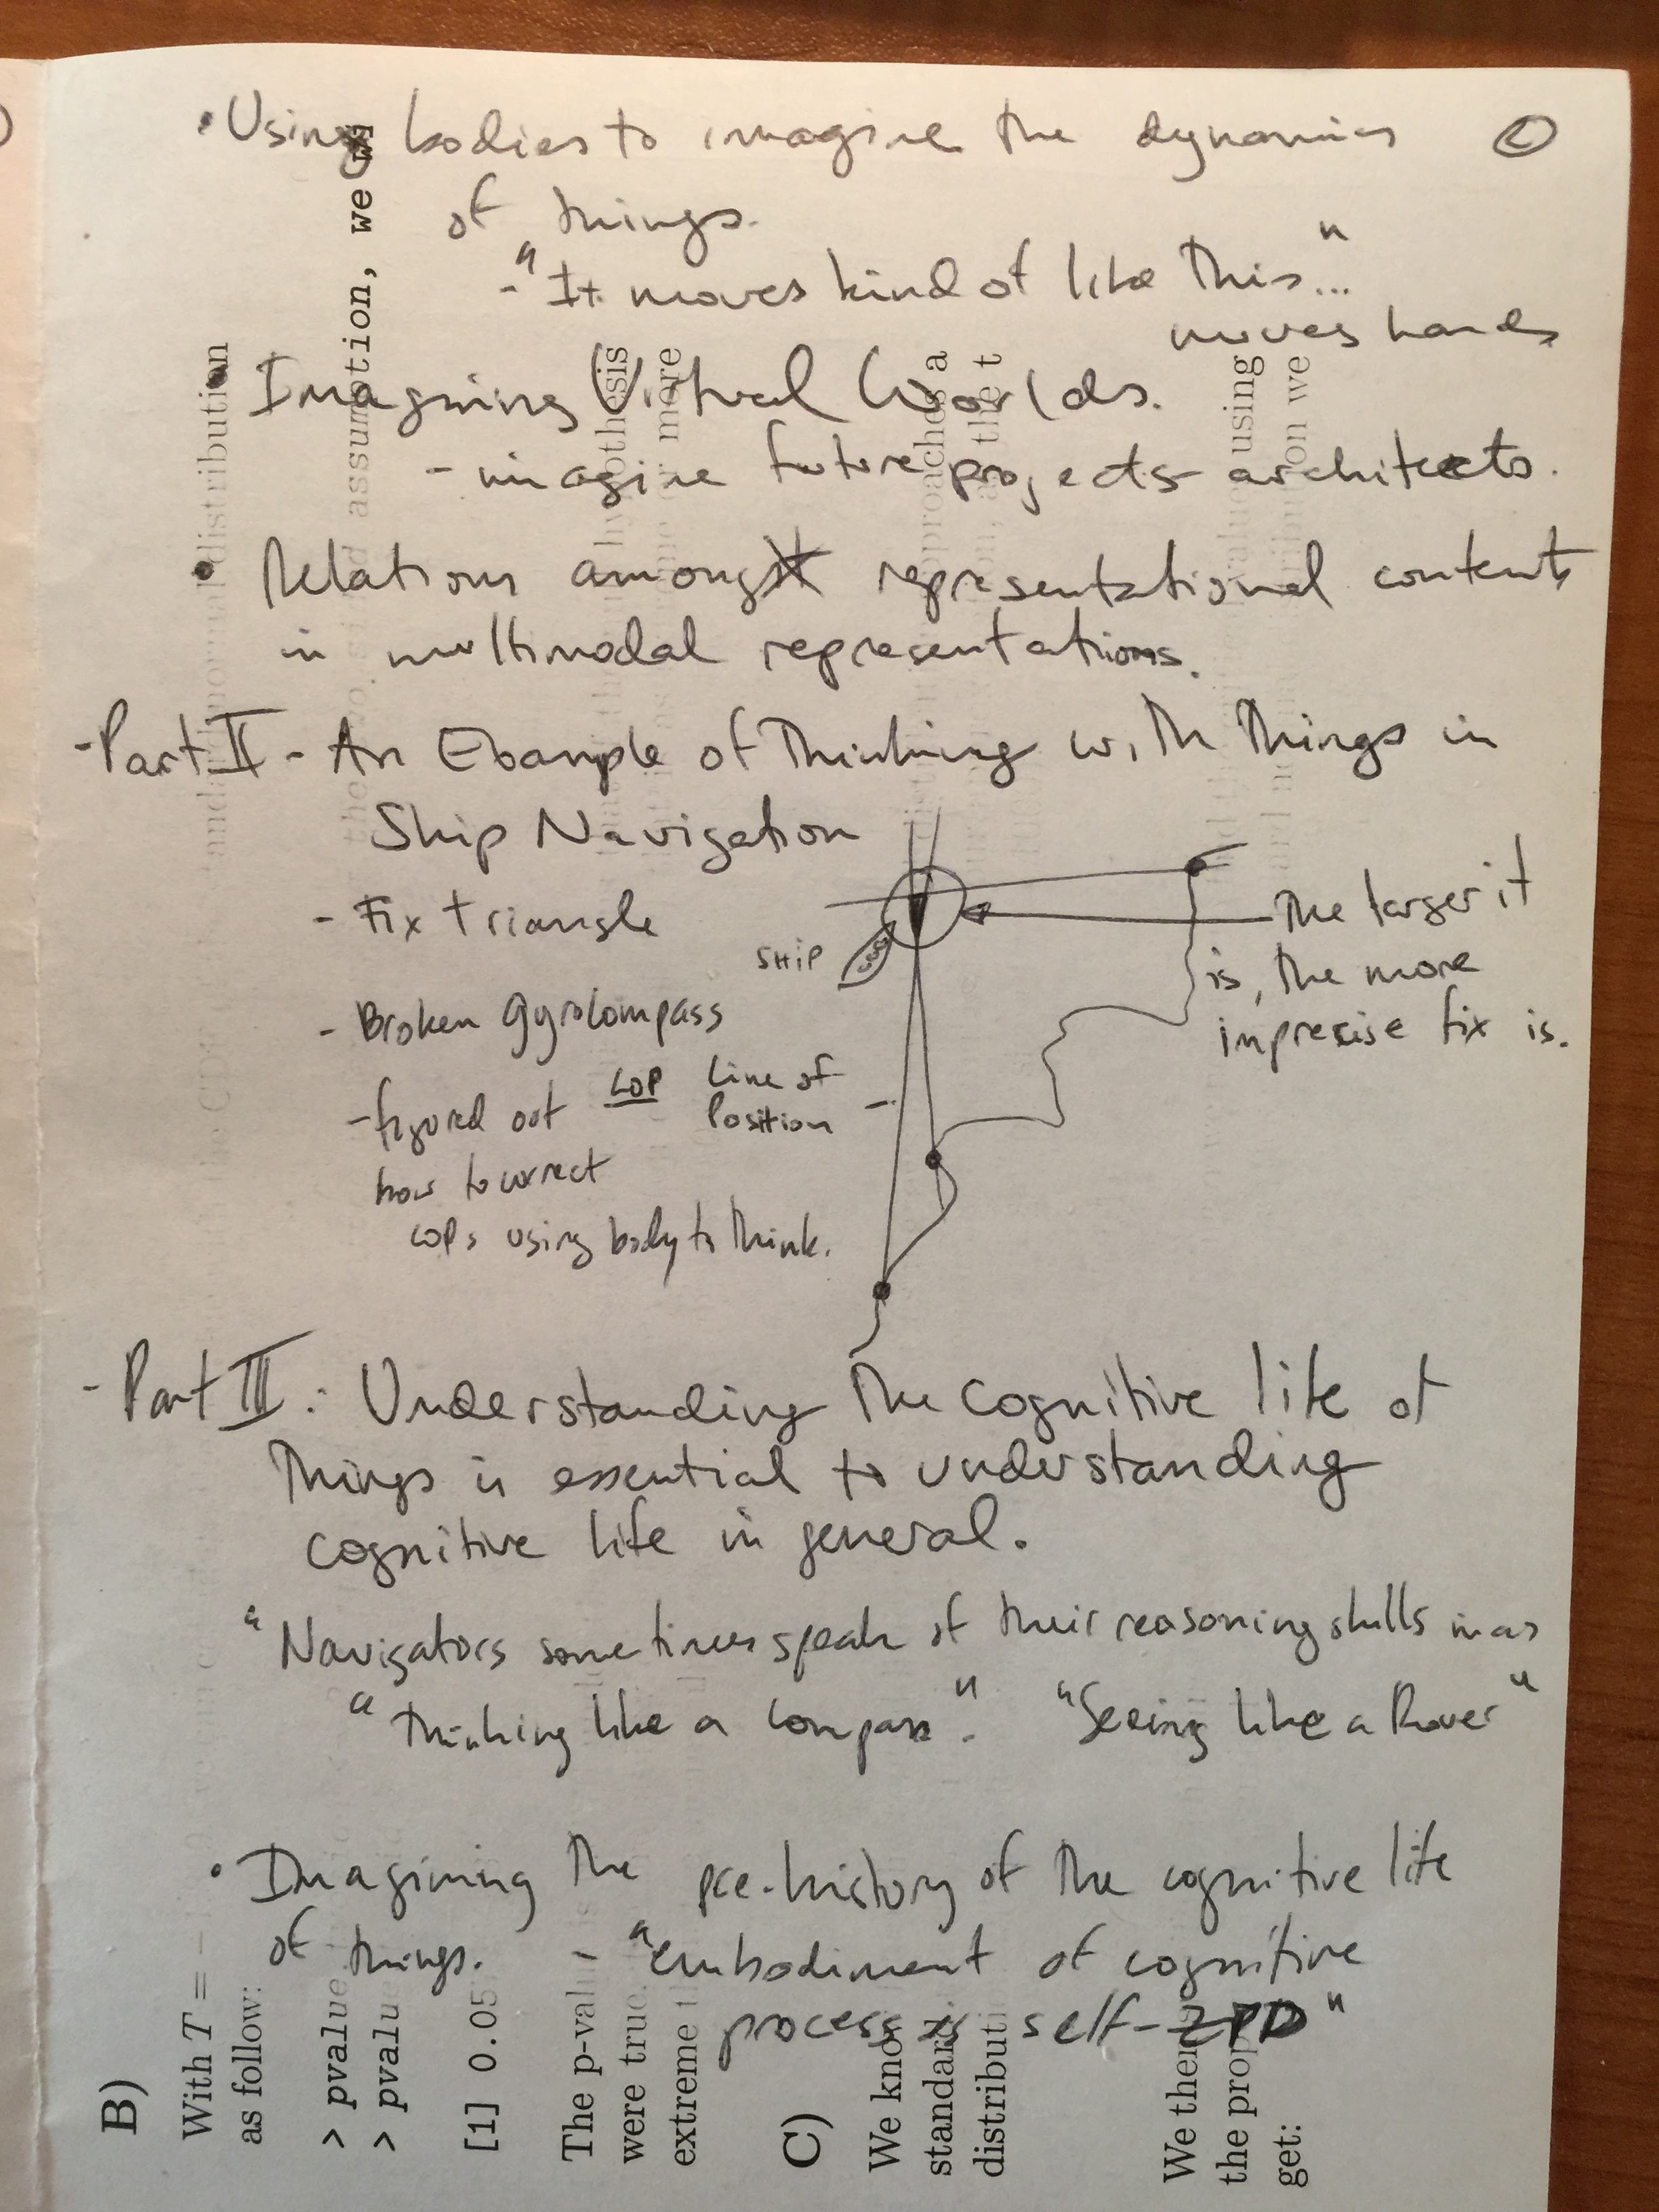 • Using bodies to imagine the dynamics
of things.
- "It moves kind of like this..."
moves hands
• Imagining Virtual Worlds.
- imagine future projects - architects.
• Relations among representational contents
in multimodal representations.
- Part II - An Example of Thinking with Things in
Ship Navigation
- Fix triangle
SHIP
The larger it
is, the more
imprecise fix is.
- Broken gyrocompass
LOP Line of
Position -
- figured out
how to correct
LOPs using body to think.
- Part III: Understanding the cognitive life of
things is essential to understanding
cognitive life in general.
"Navigators sometimes speak of their reasoning skills as
"thinking like a compass". "Seeing like a Rover"
• Imagining the pre-history of the cognitive life
of things. - "embodiment of cognitive
process is self-ZPD"
B)
With T = -
as follow:
> pvalue
> pvalu
[1] 0.05
The p-val
were true.
extreme t
C)
We kno
standard
distributi
We then
the prop
get:
assumption, we
distribution
hypothesis
more
approaches a
the t
using
on we